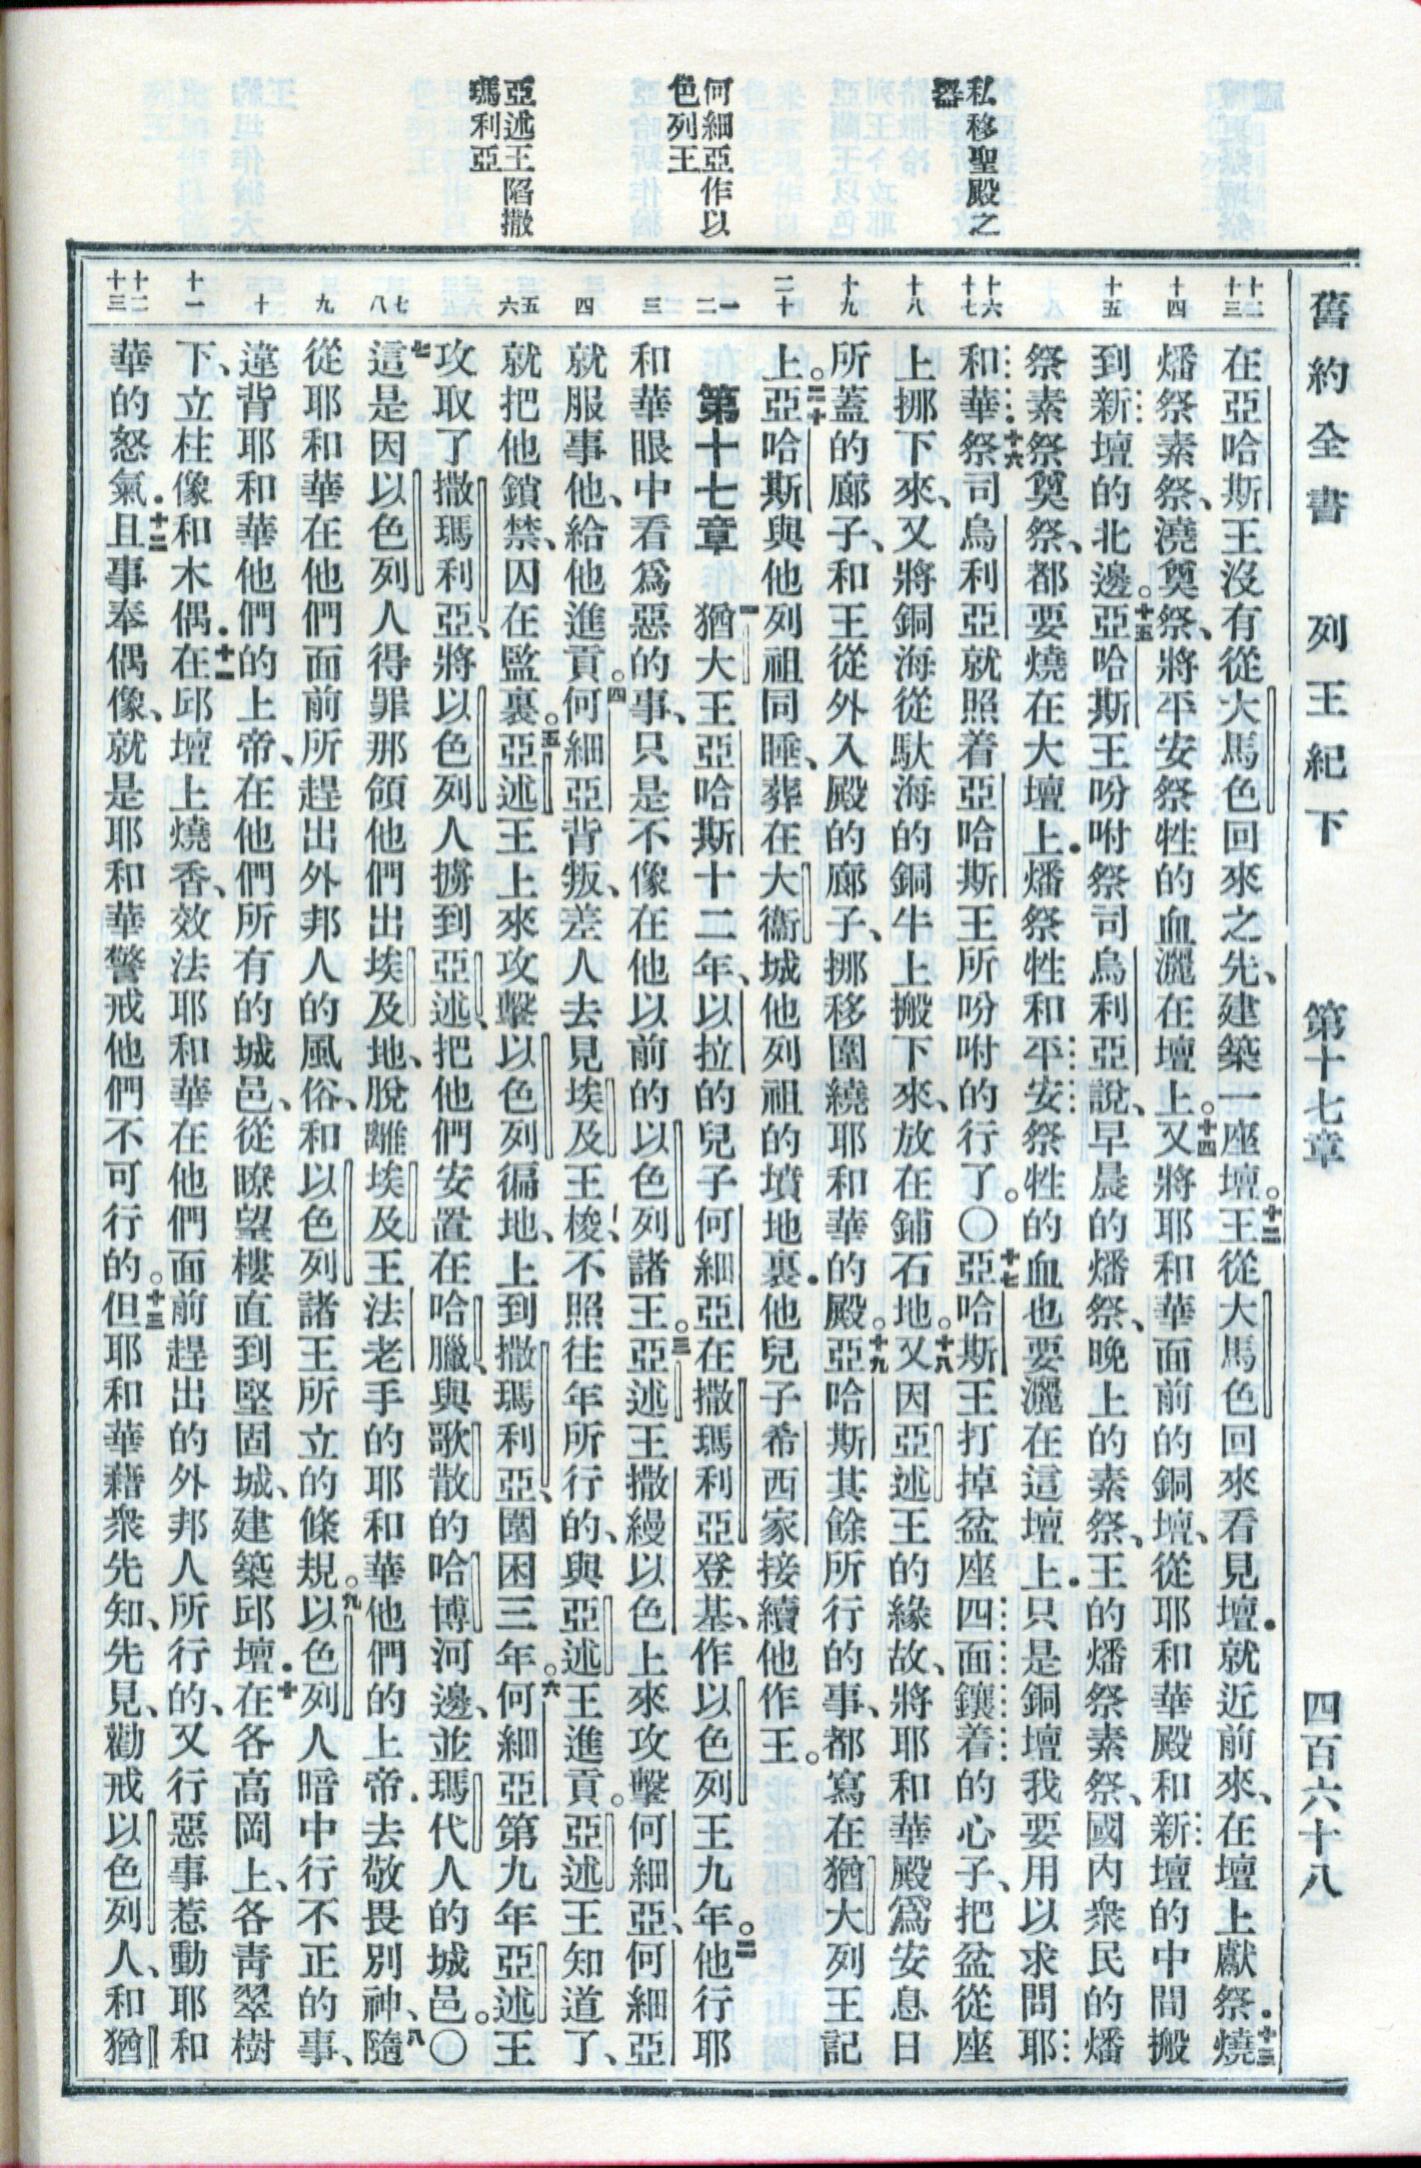 舊約全書　列王紀下　第十七章　四百六十八
私移聖殿之
器
何細亞作以
色列王
亞述王陷撒
瑪利亞
十二 十三 十四 十五 十六 十七 十八 十九 二十 一 二 三 四 五 六 七 八 九 十 十一 十二 十三
在亞哈斯王沒有從大馬色回來之先、建築一座壇。十二王從大馬色回來看見壇．就近前來、在壇上獻祭．十三燒
燔祭素祭、澆奠祭、將平安祭牲的血灑在壇上。十四又將耶和華面前的銅壇、從耶和華殿和新壇的中間搬
到新壇的北邊。十五亞哈斯王吩咐祭司烏利亞說、早晨的燔祭、晚上的素祭、王的燔祭素祭、國內衆民的燔
祭素祭奠祭、都要燒在大壇上．燔祭牲和平安祭牲的血也要灑在這壇上．只是銅壇我要用以求問耶
和華．十六祭司烏利亞就照着亞哈斯王所吩咐的行了。〇十七亞哈斯王打掉盆座四面鑲着的心子、把盆從座
上挪下來、又將銅海從馱海的銅牛上搬下來、放在鋪石地。十八又因亞述王的緣故、將耶和華殿爲安息日
所蓋的廊子、和王從外入殿的廊子、挪移圍繞耶和華的殿。十九亞哈斯其餘所行的事、都寫在猶大列王記
上。二十亞哈斯與他列祖同睡、葬在大衞城他列祖的墳地裏．他兒子希西家接續他作王。
第十七章　一猶大王亞哈斯十二年、以拉的兒子何細亞在撒瑪利亞登基、作以色列王九年。二他行耶
和華眼中看爲惡的事、只是不像在他以前的以色列諸王。三亞述王撒縵以色上來攻擊何細亞、何細亞
就服事他、給他進貢。四何細亞背叛、差人去見埃及王梭、不照往年所行的、與亞述王進貢。亞述王知道了、
就把他鎖禁、囚在監裏。五亞述王上來攻擊以色列徧地、上到撒瑪利亞、圍困三年。六何細亞第九年亞述王
攻取了撒瑪利亞、將以色列人擄到亞述、把他們安置在哈臘、與歌散的哈博河邊、並瑪代人的城邑。〇
七這是因以色列人得罪那領他們出埃及地、脫離埃及王法老手的耶和華他們的上帝．去敬畏別神、八隨
從耶和華在他們面前所趕出外邦人的風俗、和以色列諸王所立的條規。九以色列人暗中行不正的事、
違背耶和華他們的上帝、在他們所有的城邑、從瞭望樓直到堅固城、建築邱壇．十在各高岡上、各青翠樹
下、立柱像和木偶．十一在邱壇上燒香、效法耶和華在他們面前趕出的外邦人所行的、又行惡事惹動耶和
華的怒氣．十二且事奉偶像、就是耶和華警戒他們不可行的。十三但耶和華藉衆先知、先見、勸戒以色列人、和猶